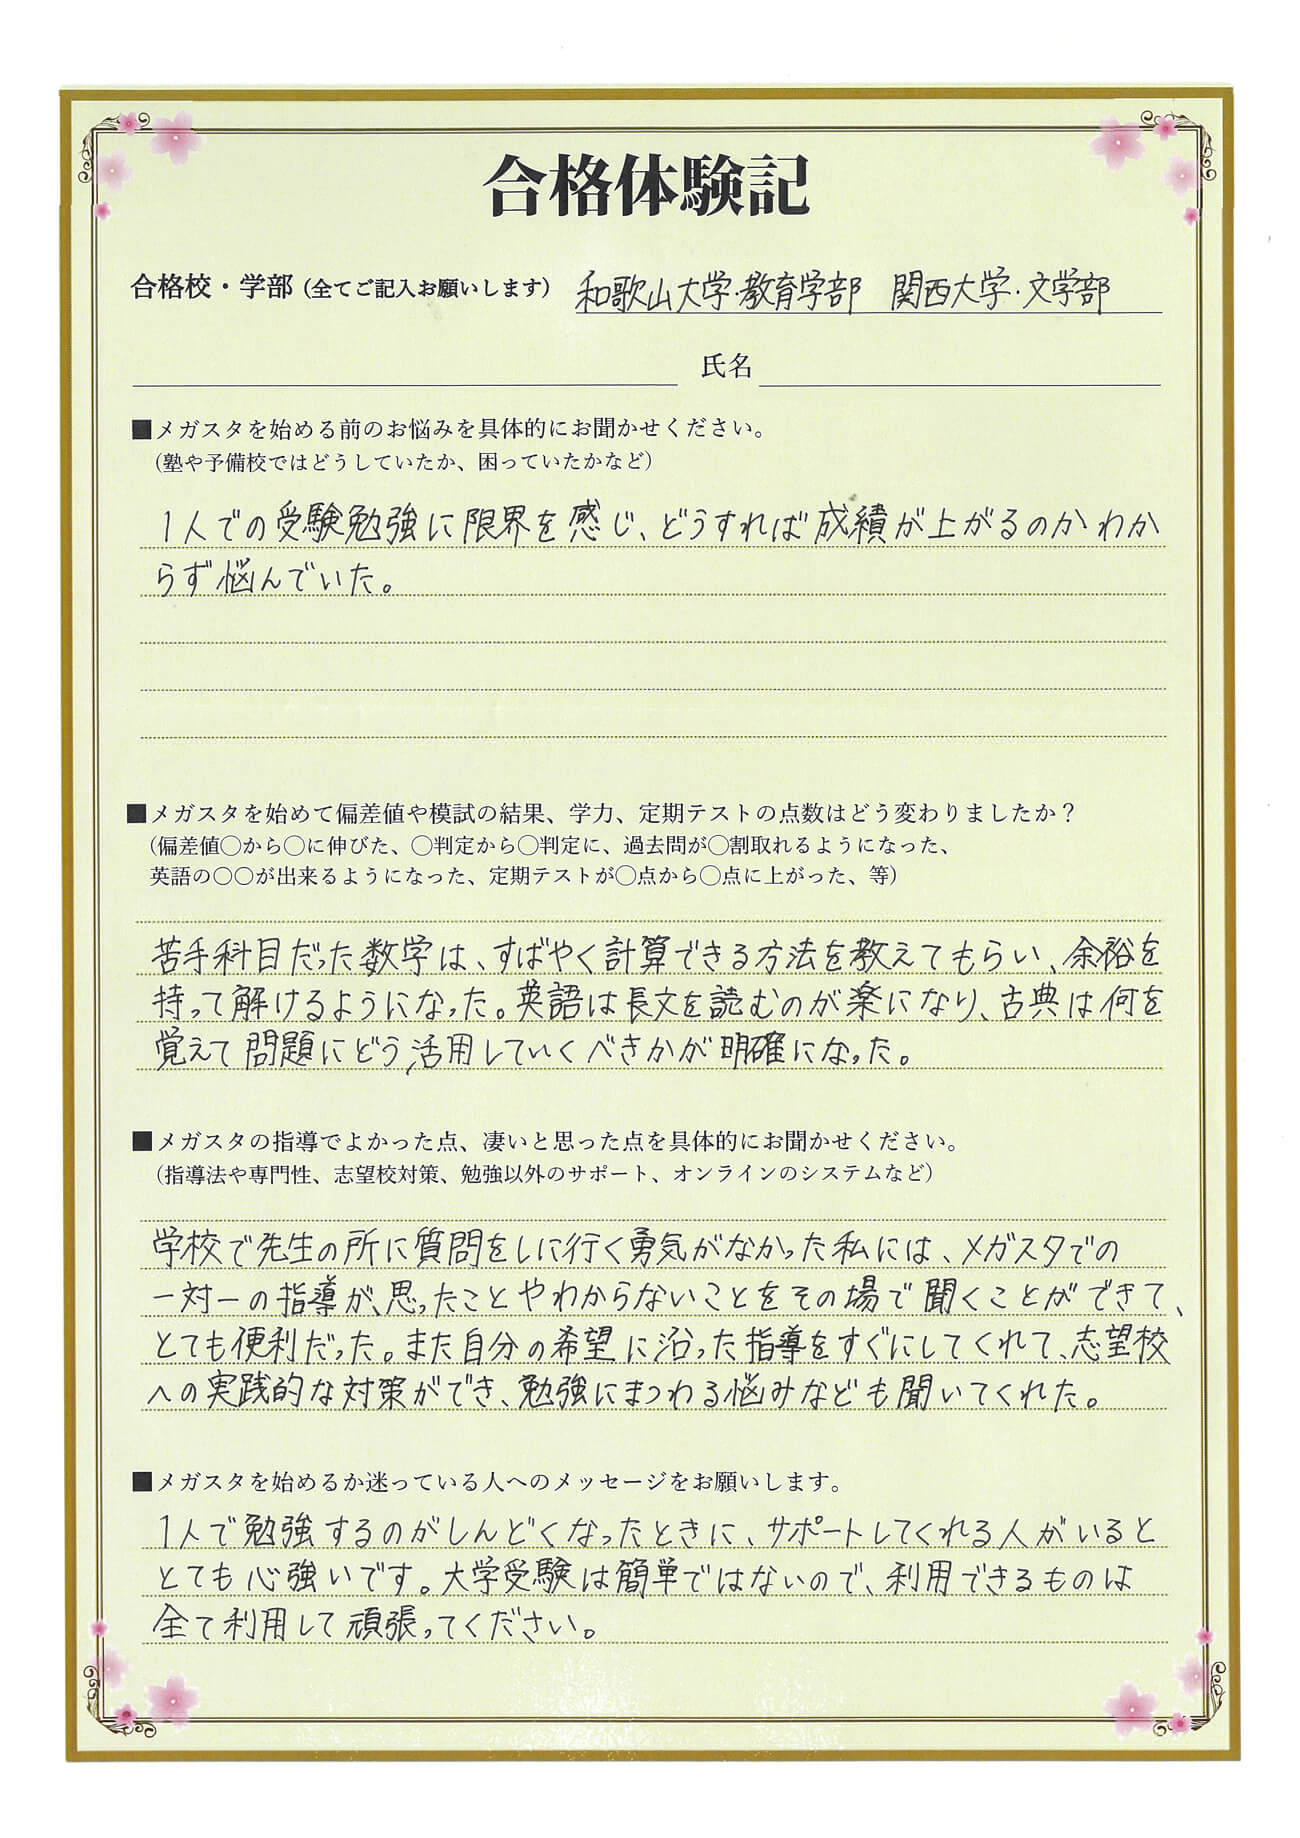 合格体験記
合格校・学部（全てご記入お願いします） 和歌山大学・教育学部 関西大学・文学部
氏名
■メガスタを始める前のお悩みを具体的にお聞かせください。
（塾や予備校ではどうしていたか、困っていたかなど）
1人での受験勉強に限界を感じ、どうすれば成績が上がるのかわか
らず悩んでいた。
■メガスタを始めて偏差値や模試の結果、学力、定期テストの点数はどう変わりましたか？
（偏差値〇から〇に伸びた、〇判定から〇判定に、過去問が〇割取れるようになった、
英語の〇〇が出来るようになった、定期テストが〇点から〇点に上がった、等）
苦手科目だった数学は、すばやく計算できる方法を教えてもらい、余裕を
持って解けるようになった。英語は長文を読むのが楽になり、古典は何を
覚えて問題にどう活用していくべきかが明確になった。
■メガスタの指導でよかった点、凄いと思った点を具体的にお聞かせください。
（指導法や専門性、志望校対策、勉強以外のサポート、オンラインのシステムなど）
学校で先生の所に質問をしに行く勇気がなかった私には、メガスタでの
一対一の指導が、思ったことやわからないことをその場で聞くことができて、
とても便利だった。また自分の希望に沿った指導をすぐにしてくれて、志望校
への実践的な対策ができ、勉強にまつわる悩みなども聞いてくれた。
■メガスタを始めるか迷っている人へのメッセージをお願いします。
1人で勉強するのがしんどくなったときに、サポートしてくれる人がいると
とても心強いです。大学受験は簡単ではないので、利用できるものは
全て利用して頑張ってください。